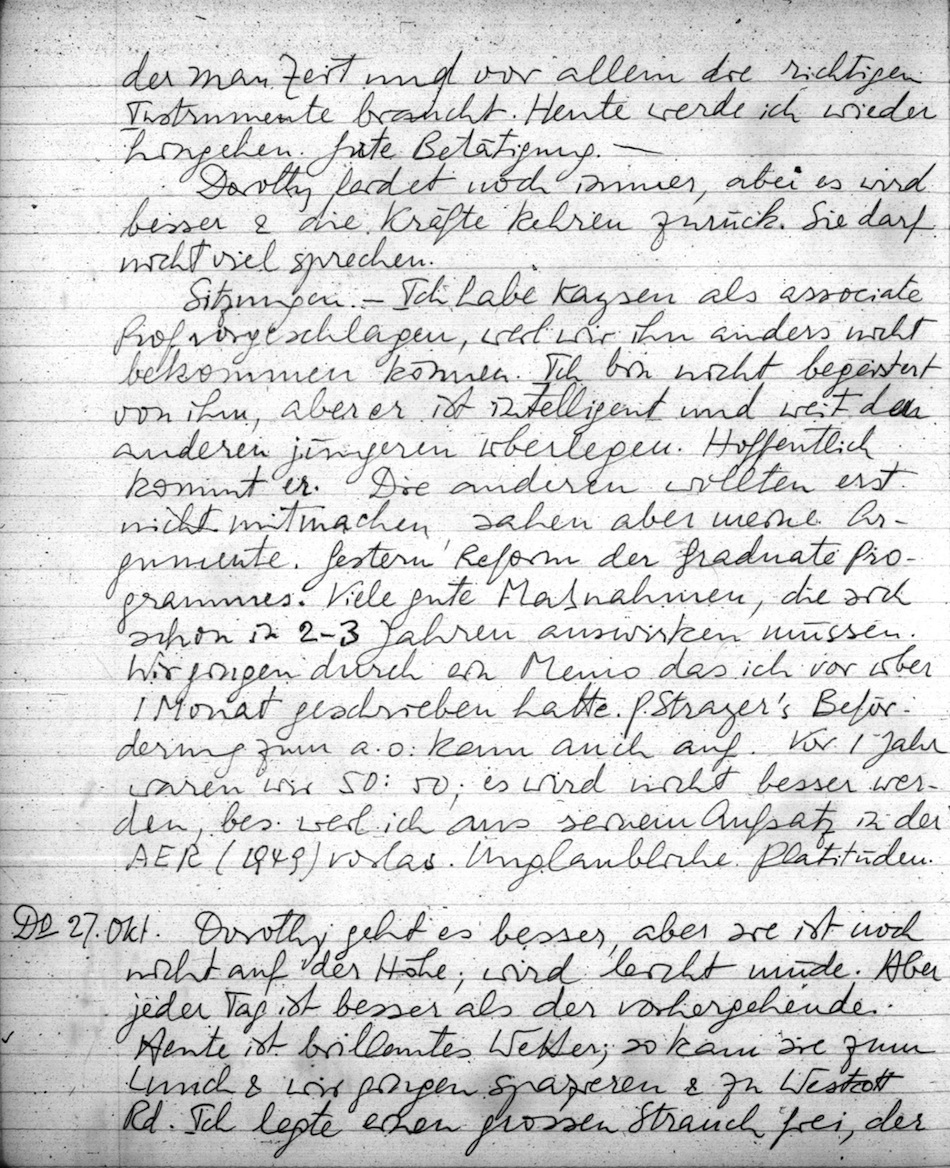 der man Zeit und vor allem die richtigen
Instrumente braucht. Heute werde ich wieder
hingehen. Gute Betätigung. —
Dorothy leidet noch immer, aber es wird
besser & die Kräfte kehren zurück. Sie darf
nicht viel sprechen.
Sitzungen. – Ich habe Kaysen als associate
Prof vorgeschlagen, weil wir ihn anders nicht
bekommen können. Ich bin nicht begeistert
von ihm, aber er ist intelligent und weit den
anderen jüngeren überlegen. Hoffentlich
kommt er. Die anderen wollten erst
nicht mitmachen, sahen aber meine Ar-
gumente. Gestern Reform der Graduate Pro-
grammes. Viele gute Maßnahmen, die sich
schon in 2-3 Jahren auswirken müssen.
Wir gingen durch ein Memo das ich vor über
1 Monat geschrieben hatte. P. Strayer's Beför-
derung zum a.o. kam auch auf. Vor 1 Jahr
waren wir 50:50; es wird nicht besser wer-
den, bes. weil ich aus seinem Aufsatz in der
AER (1949) vorlas. Unglaubliche Platitüden.
Do 27. Okt. Dorothy geht es besser, aber sie ist noch
nicht auf der Höhe, wird leicht müde. Aber
jeder Tag ist besser als der vorhergehende.
Heute ist brillantes Wetter; so kam sie zum
Lunch & wir gingen spazieren & zu Westcott
Rd. Ich legte einen grossen Strauch frei, der